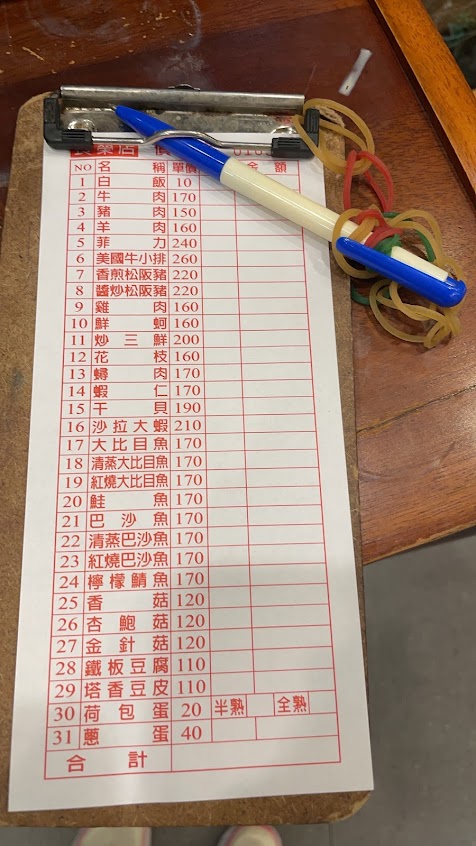 NO 名稱 單價 金額
1 白飯 10
2 牛肉 170
3 豬肉 150
4 羊肉 160
5 菲力 240
6 美國牛小排 260
7 香煎松阪豬 220
8 醬炒松阪豬 220
9 雞肉 160
10 鮮蚵 160
11 炒三鮮 200
12 花枝 160
13 蟳肉 170
14 蝦仁 170
15 干貝 190
16 沙拉大蝦 210
17 大比目魚 170
18 清蒸大比目魚 170
19 紅燒大比目魚 170
20 鮭魚 170
21 巴沙魚 170
22 清蒸巴沙魚 170
23 紅燒巴沙魚 170
24 檸檬鯖魚 170
25 香菇 120
26 杏鮑菇 120
27 金針菇 120
28 鐵板豆腐 110
29 塔香豆皮 110
30 荷包蛋 20 半熟 全熟
31 蔥蛋 40
合計